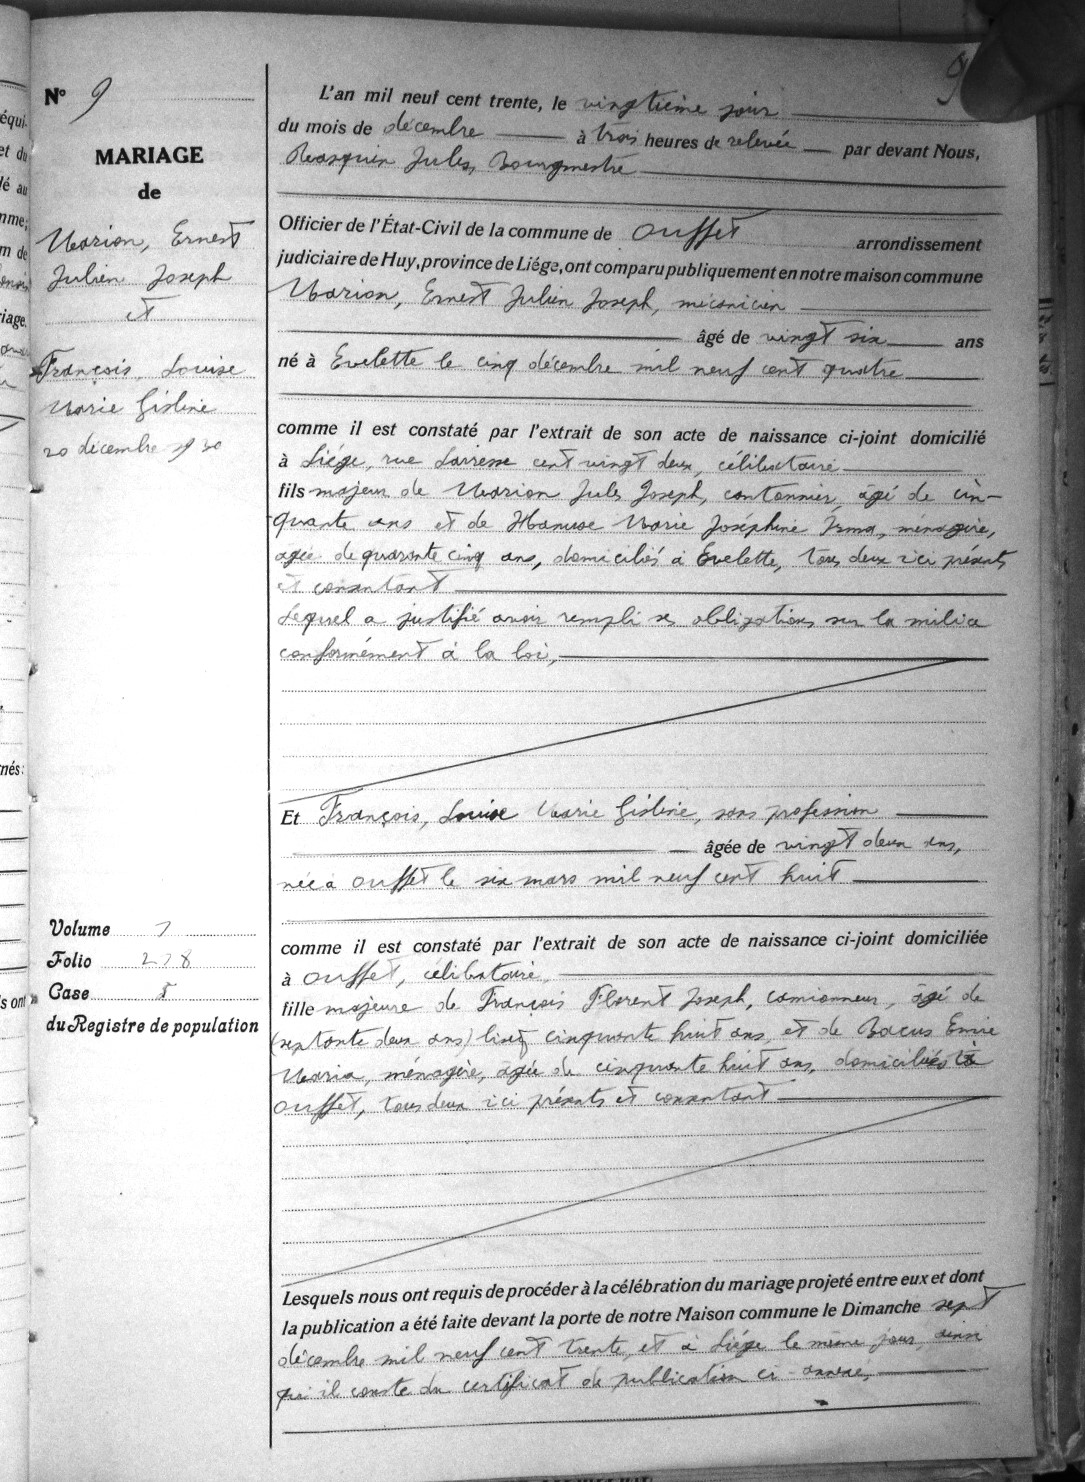 N° 9
MARIAGE
de
Marion, Ernest
Julien Joseph
et
François, Louise
Marie Gisline
20 décembre 1930
Volume 7
Folio 278
Case 5
du Registre de population
L'an mil neuf cent trente, le vingtième jour
du mois de décembre à trois heures de relevée par devant Nous,
Jules, Bourgmestre
Officier de l'État-Civil de la commune de Ouffet arrondissement
judiciaire de Huy, province de Liége, ont comparu publiquement en notre maison commune
Marion, Ernest Julien Joseph, mécanicien
âgé de vingt six ans
né à Evelette le cinq décembre mil neuf cent quatre
comme il est constaté par l'extrait de son acte de naissance ci-joint domicilié
à Liége, rue Lairesse cent vingt deux, célibataire
fils majeur de Marion Jules Joseph, cantonnier, âgé de cin-
quante ans et de Hanuse Marie Joséphine Irma, ménagère,
agée de quarante cinq ans, domiciliés à Evelette, tous deux ici présents
et consentant
Lequel a justifié avoir rempli ses obligations sur la milice
conformément à la loi,
Et François, Louise Marie Gisline, sans profession
âgée de vingt deux ans,
née à Ouffet le six mars mil neuf cent huit
comme il est constaté par l'extrait de son acte de naissance ci-joint domiciliée
à Ouffet, célibataire,
fille majeure de François Florent Joseph, camionneur, âgé de
(septante deux ans) lisez cinquante huit ans, et de Bacus Emie
Maria, ménagère, agée de cinquante huit ans, domiciliés à
Ouffet, tous deux ici présents et consentant
Lesquels nous ont requis de procéder à la célébration du mariage projeté entre eux et dont
la publication a été faite devant la porte de notre Maison commune le Dimanche sept
décembre mil neuf cent trente, et à Liége le même jour, ainsi
qu'il conste du certificat de publication ci-annexé,